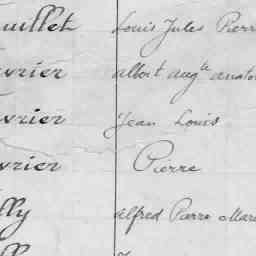 uillet Louis Jules Pierr
vrier albert aug.te anato
vrier Jean Louis
vrier Pierre
lly alfred Pierre Mari